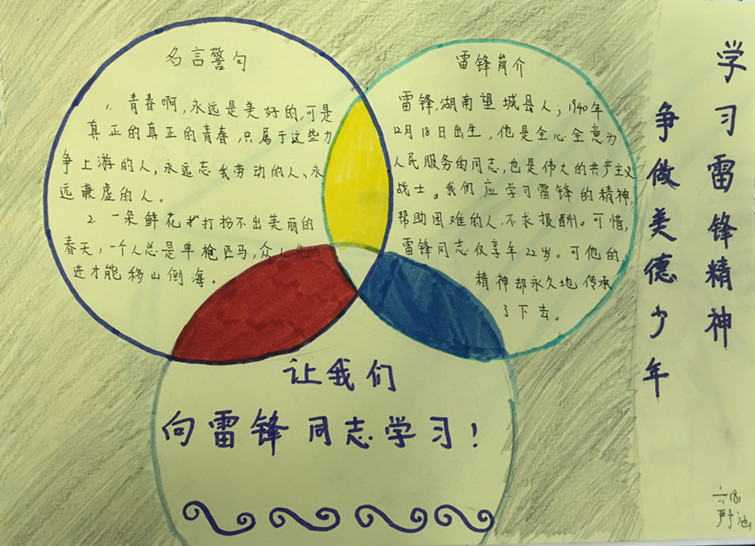 学习雷锋精神
争做美德少年
名言警句
1. 青春啊,永远是美好的,可是
真正的真正的青春,只属于这些力
争上游的人,永远忘我劳动的人、永
远谦虚的人。
2. 一朵鲜花打扮不出美丽的
春天,一个人总是单枪匹马,众人先
进才能移山倒海。
雷锋简介
雷锋,湖南望城县人;1940年
12月18日出生,他是全心全意为
人民服务的同志,也是伟大的共产主义
战士。我们应学习雷锋的精神,
帮助困难的人,不求报酬。可惜,
雷锋同志仅享年22岁。可他的
精神却永久地传承
了下去。
让我们
向雷锋同志学习!